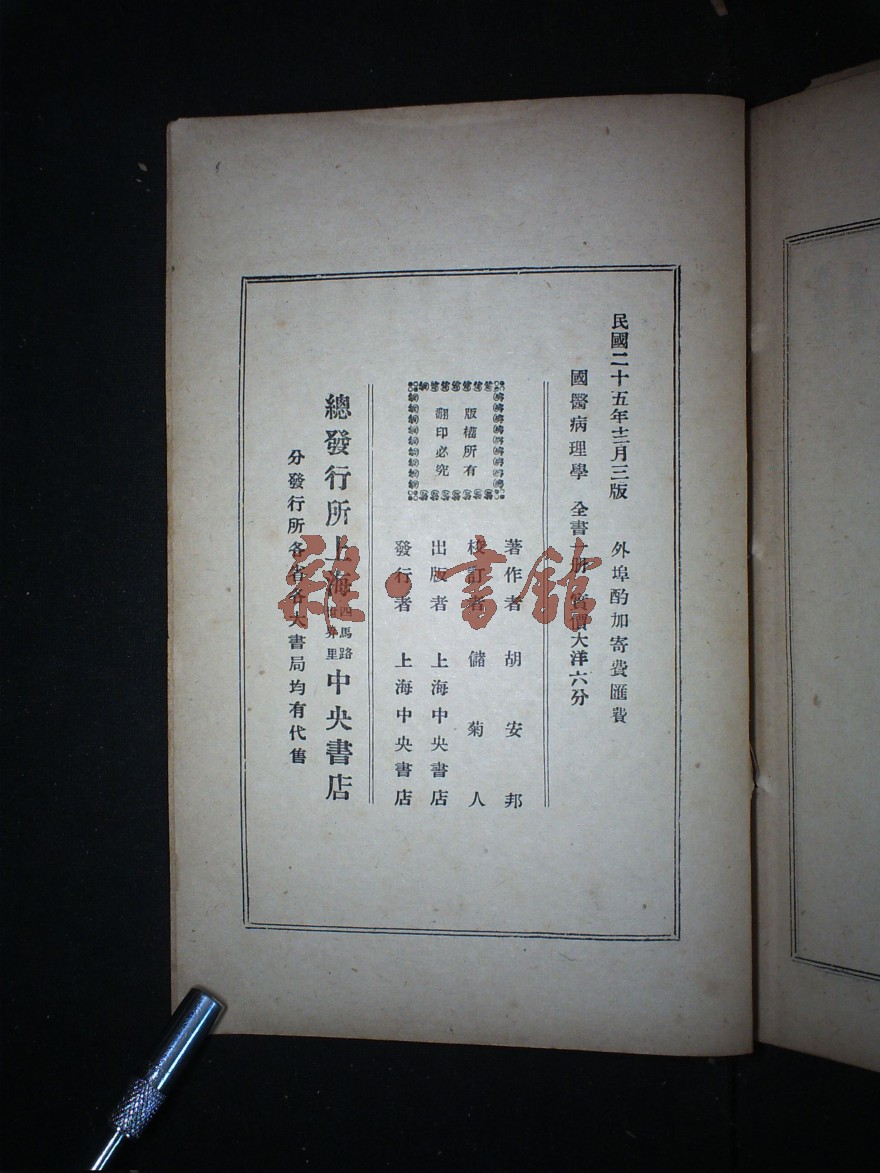 民國二十五年十二月三版
外埠酌加寄費匯費
國醫病理學 全書一冊 實價大洋六分
著作者 胡安邦
校訂者 儲菊人
出版者 上海中央書店
發行者 上海中央書店
版權所有
翻印必究
總發行所上海
四馬路
里
中央書店
分發行所各省各大書局均有代售
雜·書館